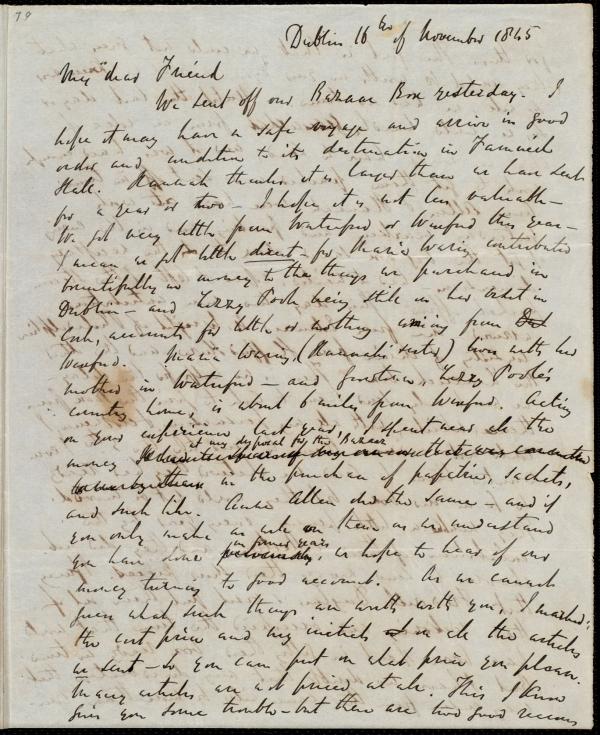 79
Dublin 16th of November 1845
My dear Friend
We sent off our Bazaar Box yesterday. I
hope it may have a safe voyage and arrive in good
order and condition to its destination in Faneuil
Hall. Hannah thinks it is larger than we have sent
for a year or two – I hope it is not less valuable –
We got very little from Waterford or Wexford this year –
I mean we got little direct – for Maria Waring contributed
bountifully in money to the things we purchased in
Dublin – and Lizzy Poole being still on her visit in
Cork, accounts for little or nothing coming from
Wexford. Maria Waring (Hannah's sister) lives with her
mother in Waterford – and Growtown, Lizzy Poole's
country home, is about 6 miles from Wexford. Acting
on your experience last year, I spent near all the
at my disposal for the Bazaar
money in the purchase of papeterie, sachets,
and such like. Anne Allen did the same – and if
you only make as well on them as we understand
in former years
you have done previously, we hope to hear of our
money turning to good account. As we cannot
guess what such things are worth with you, I marked
the cost price and my initials on all the articles
we sent – so you can put on what price you please.
Many articles are not priced at all. This I know
gives you some trouble – but there are two good reasons